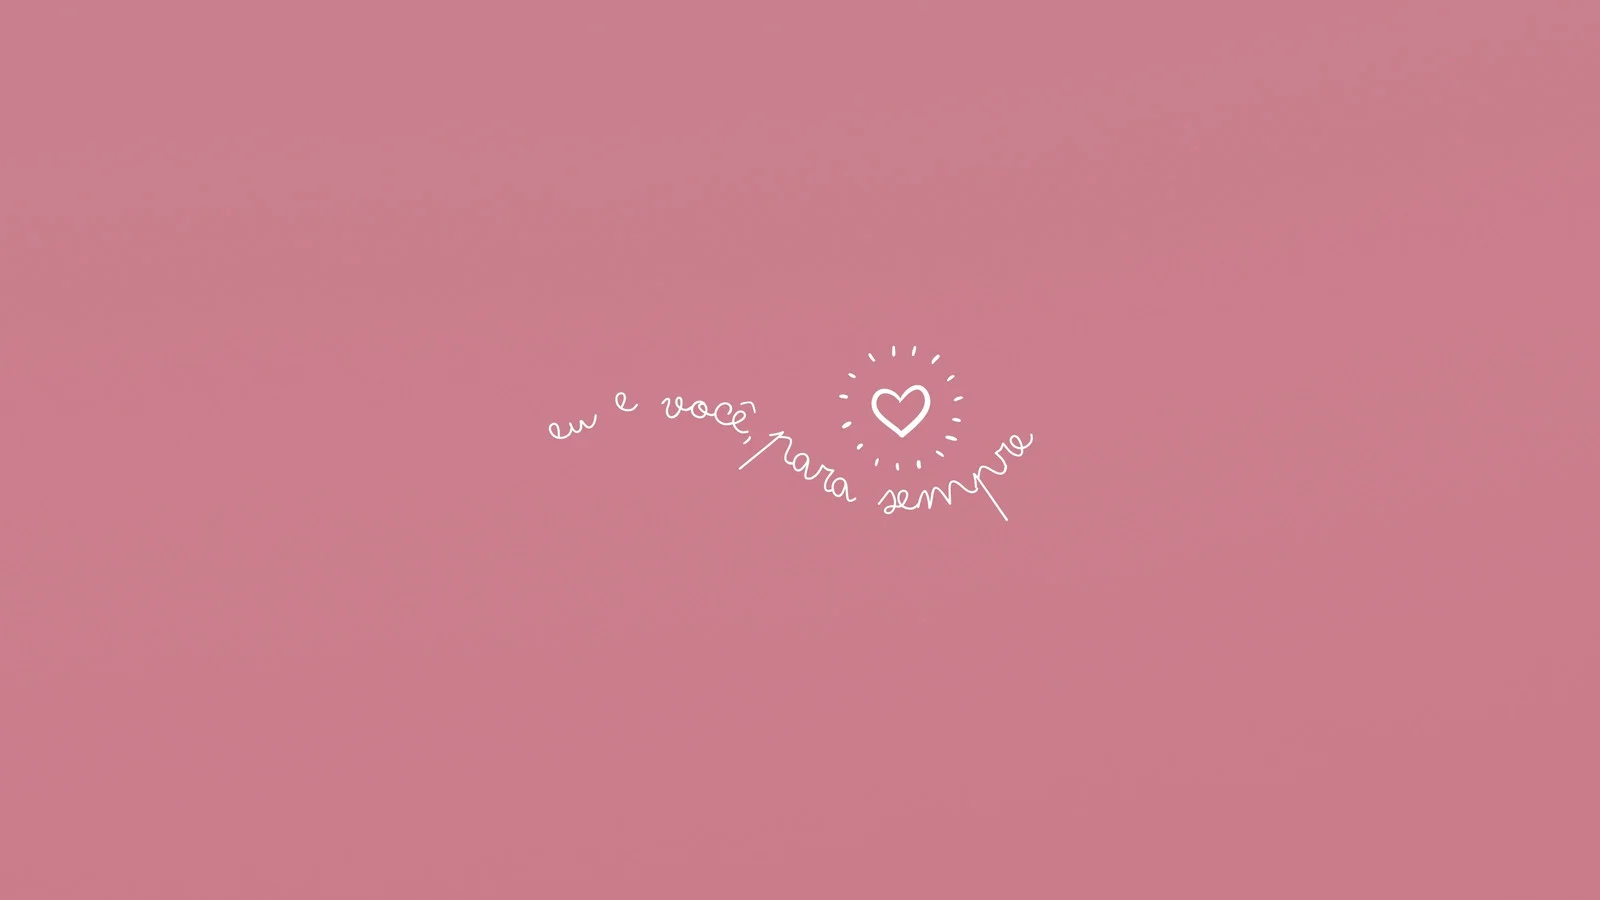 eu e você, para sempre